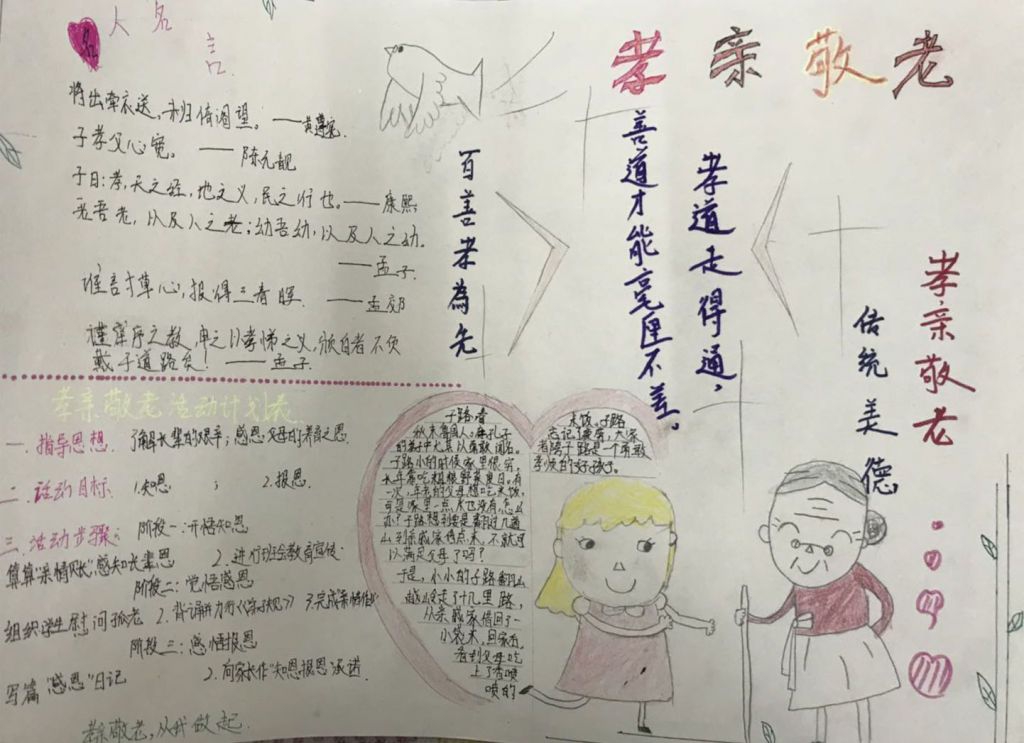 名人名言
将出牵衣送,未归倚阁望。——黄遵宪
子孝父心宽。——陈元靓
子曰:孝,天之经,地之义,民之行也。——康熙
老吾老,以及人之老;幼吾幼,以及人之幼。
——孟子
谁言寸草心,报得三春晖。——孟郊
谨庠序之教,申之以孝悌之义,颁白者不负
戴于道路矣!——孟子
百善孝為先
孝亲敬老
孝道走得通,
善道才能竟匣不差。
孝亲敬老
传统美德
孝亲敬老活动计划表
一、指导思想 了解长辈的艰辛;感恩父母的养育之恩
二、活动目标 1.知恩; 2.报恩
三、活动步骤: 阶段一:开悟知恩
算算"亲情账"感知长辈恩 2.进行班会教育宣传
阶段二:觉悟感恩
组织学生慰问孤老 2.背诵并力行《弟子规》 3.完成亲情作业
阶段三:感悟报恩
写篇"感恩"日记 2.向家长作"知恩报恩"承诺
孝亲敬老,从我做起
子路,春
秋末鲁国人。在孔子
的弟子中尤其以勇敢闻名。
子路小的时候家里很穷,
长年靠吃粗粮野菜度日。有
一次,年老的父母想吃米饭,
可是家里一点米也没有,怎么
办?子路想到要是翻过几道
山到亲戚家借点米,不就可
以满足父母了吗?
于是,小小的子路翻山
越岭走了十几里路,
从亲戚家借回了一
小袋米,回家后,
看到父母吃
上了香喷
喷的
米饭,子路
忘记了疲劳,大家
都夸子路是一个勇敢
孝顺的好孩子。